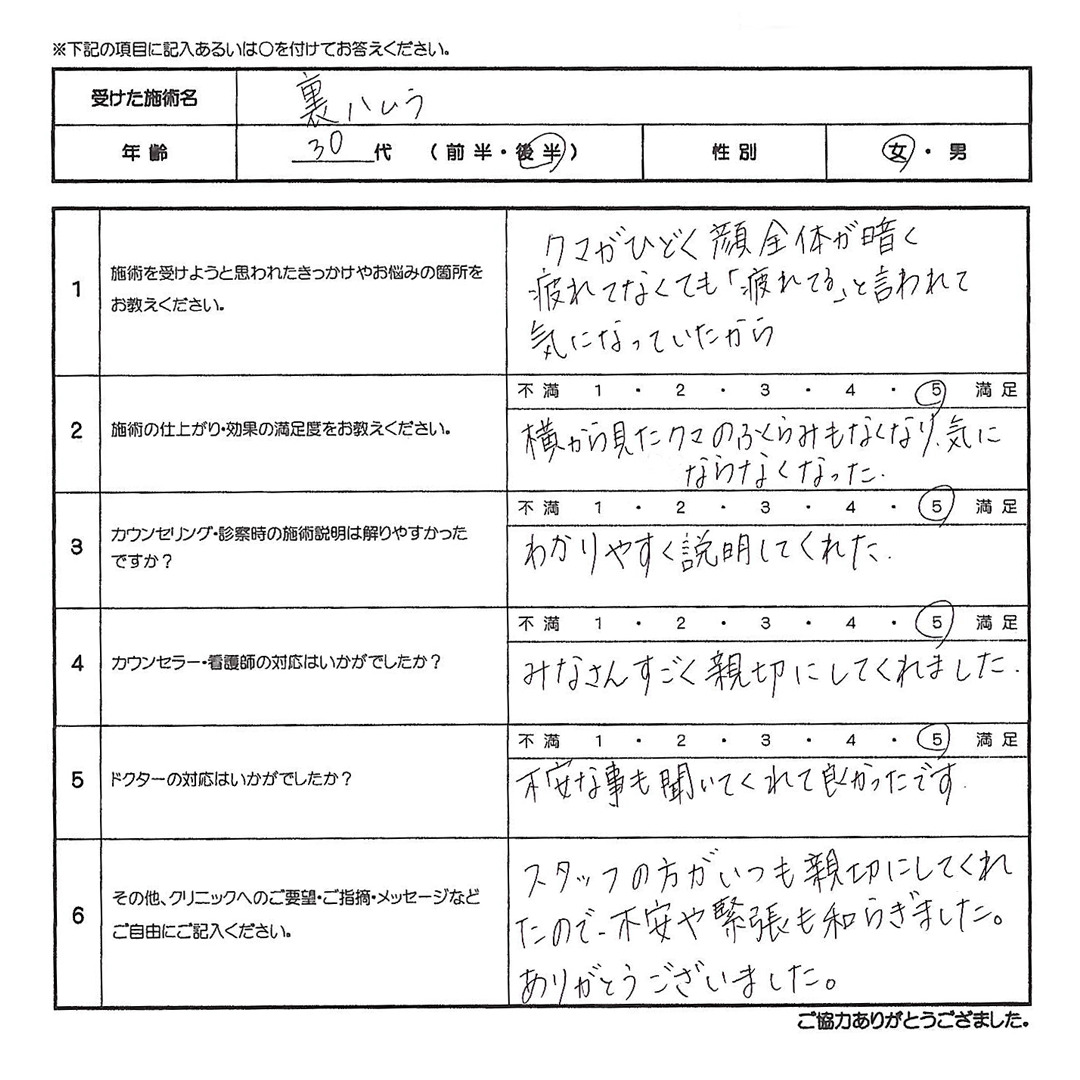 ※下記の項目に記入あるいは○を付けてお答えください。
受けた施術名 裏ハムラ
年齢 30 代 (前半・後半) 性別 女・男
1 施術を受けようと思われたきっかけやお悩みの箇所を
お教えください。
クマがひどく顔全体が暗く
疲れてなくても「疲れてる」と言われて
気になっていたから
2 施術の仕上がり・効果の満足度をお教えください。
不満 1 ・ 2 ・ 3 ・ 4 ・ 5 満足
横から見たクマのふくらみもなくなり、気に
ならなくなった.
3 カウンセリング・診察時の施術説明は解りやすかった
ですか?
不満 1 ・ 2 ・ 3 ・ 4 ・ 5 満足
わかりやすく説明してくれた.
4 カウンセラー・看護師の対応はいかがでしたか?
不満 1 ・ 2 ・ 3 ・ 4 ・ 5 満足
みなさんすごく親切にしてくれました.
5 ドクターの対応はいかがでしたか?
不満 1 ・ 2 ・ 3 ・ 4 ・ 5 満足
不安な事も聞いてくれて良かったです.
6 その他、クリニックへのご要望・ご指摘・メッセージなど
ご自由にご記入ください。
スタッフの方がいつも親切にしてくれ
たので、不安や緊張も和らぎました。
ありがとうございました。
ご協力ありがとうござました。